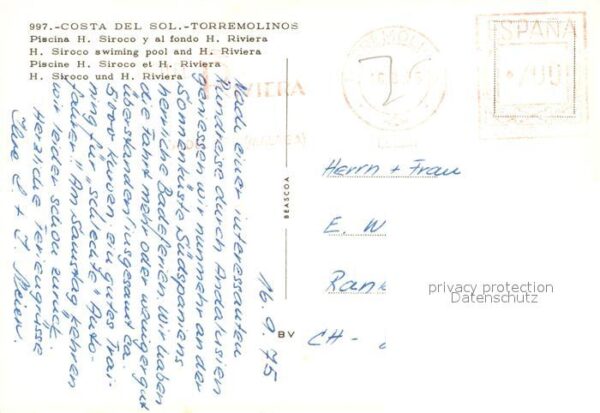 997.-COSTA DEL SOL.-TORREMOLINOS
Piscina H. Siroco y al fondo H. Riviera
H. Siroco swiming pool and H. Riviera
Piscine H. Siroco et H. Riviera
H. Siroco und H. Riviera
RIVIERA
ESPAÑA
BEASCOA
BV
16.9.75
Nach einer interessanten
Rundreise durch Andalusien
geniessen wir nunmehr an der
Sonnenküste Südspaniens
herrliche Badeferien. Wir haben
die Fahrt mehr oder weniger gut
überstanden (insgesamt ca.
5'000 Kurven, ein gutes Trai-
ning für "schlechte" Auto-
fahrer). Am Samstag kehren
wir leider schon zurück.
Herzliche Feriengrüsse
Ihre
Herrn + Frau
E. W
Ran
CH -
privacy protection
Datenschutz